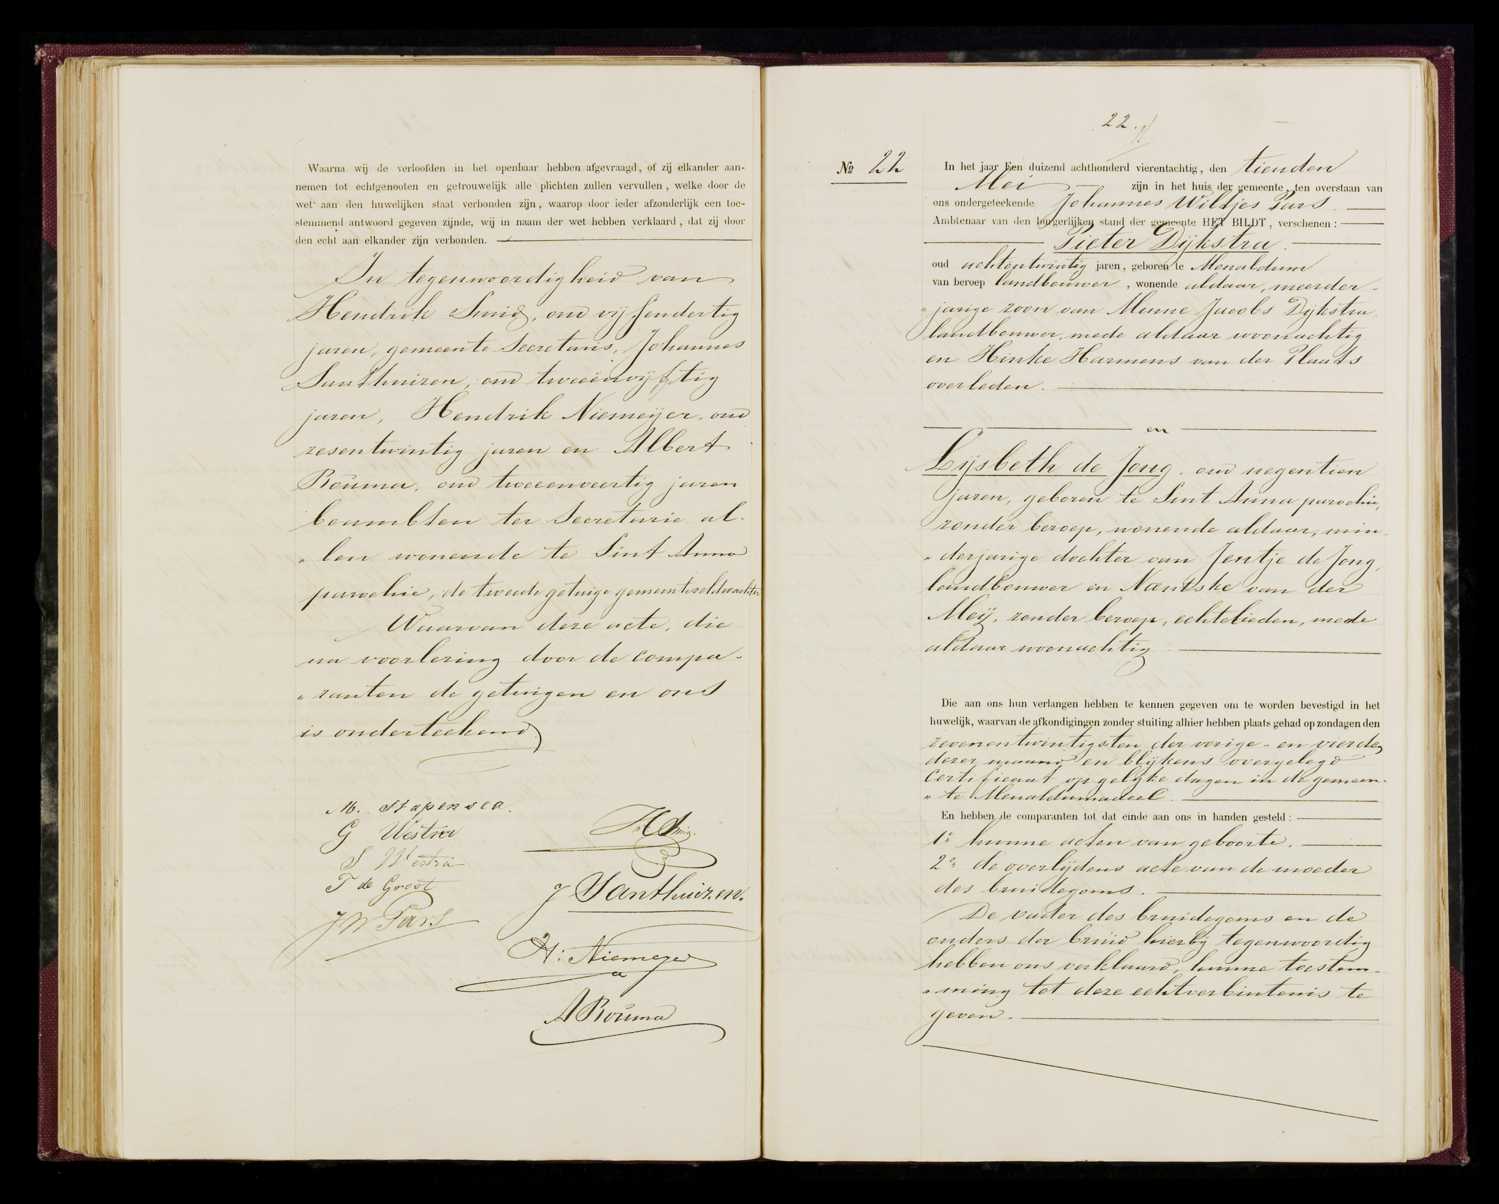 Waarna wij de verloofden in het openbaar hebben afgevraagd, of zij elkander aan-
nemen tot echtgenooten en getrouwelijk alle plichten zullen vervullen, welke door de
wet aan den huwelijken staat verbonden zijn, waarop door ieder afzonderlijk een toe-
stemmend antwoord gegeven zijnde, wij in naam der wet hebben verklaard, dat zij door
den echt aan elkander zijn verbonden.
In tegenwoordigheid van
Hendrik Smid, oud vijfendertig
jaren, gemeente Secretaris, Johannes
Santhuizen, oud tweeënvijftig
jaren, Hendrik Niemeijer, oud
zesentwintig jaren en Albert
Bouma, oud tweeenveertig jaren
beambten ter Secretarie al-
„len wonende te Sint Anna
parochie, de tweede getuige gemeenteveldwachter
Waarvan deze acte, die
na voorlezing door de compa-
„ranten de getuigen en ons
is onderteekend.
M. Stapensea.
G Westra
S Westra
T de Groot
J W Pars
HSmid.
J Santhuizen.
H: Niemeyer
A Bouma
22.
No 22
In het jaar Een duizend achthonderd vierentachtig, den tienden
Mei zijn in het huis der gemeente, ten overstaan van
ons ondergeteekende Johannes Wiltjes Pars
Ambtenaar van den burgerlijken stand der gemeente HET BILDT, verschenen:
Pieter Dijkstra.
oud achtentwintig jaren, geboren te Menaldum
van beroep landbouwer, wonende aldaar, meerder-
„jarige zoon van Menne Jacobs Dijkstra
landbouwer, mede aldaar woonachtig
en Hinke Harmens van der Plaats
overleden.
en
Lijsbeth de Jong, oud negentien
jaren, geboren te Sint Anna parochie,
zonder beroep, wonende aldaar, min-
„derjarige dochter van Jentje de Jong,
landbouwer en Nantske van der
Meij, zonder beroep, echtelieden, mede
aldaar woonachtig
Die aan ons hun verlangen hebben te kennen gegeven om te worden bevestigd in het
huwelijk, waarvan de afkondigingen zonder stuiting alhier hebben plaats gehad op zondagen den
zevenentwintigsten der vorige- en vierde
dezer maand en blijkens overgelegd
Certificaat op gelijke dagen in de gemeen-
„te Menaldumadeel.
En hebben de comparanten tot dat einde aan ons in handen gesteld:
1o hunne acten van geboorte.
2o de overlijdens acte van de moeder
des bruidegoms.
De vader des bruidegoms en de
ouders der bruid hierbij tegenwoordig
hebben ons verklaard, hunne toestem-
„ming tot deze echtverbintenis te
geven.